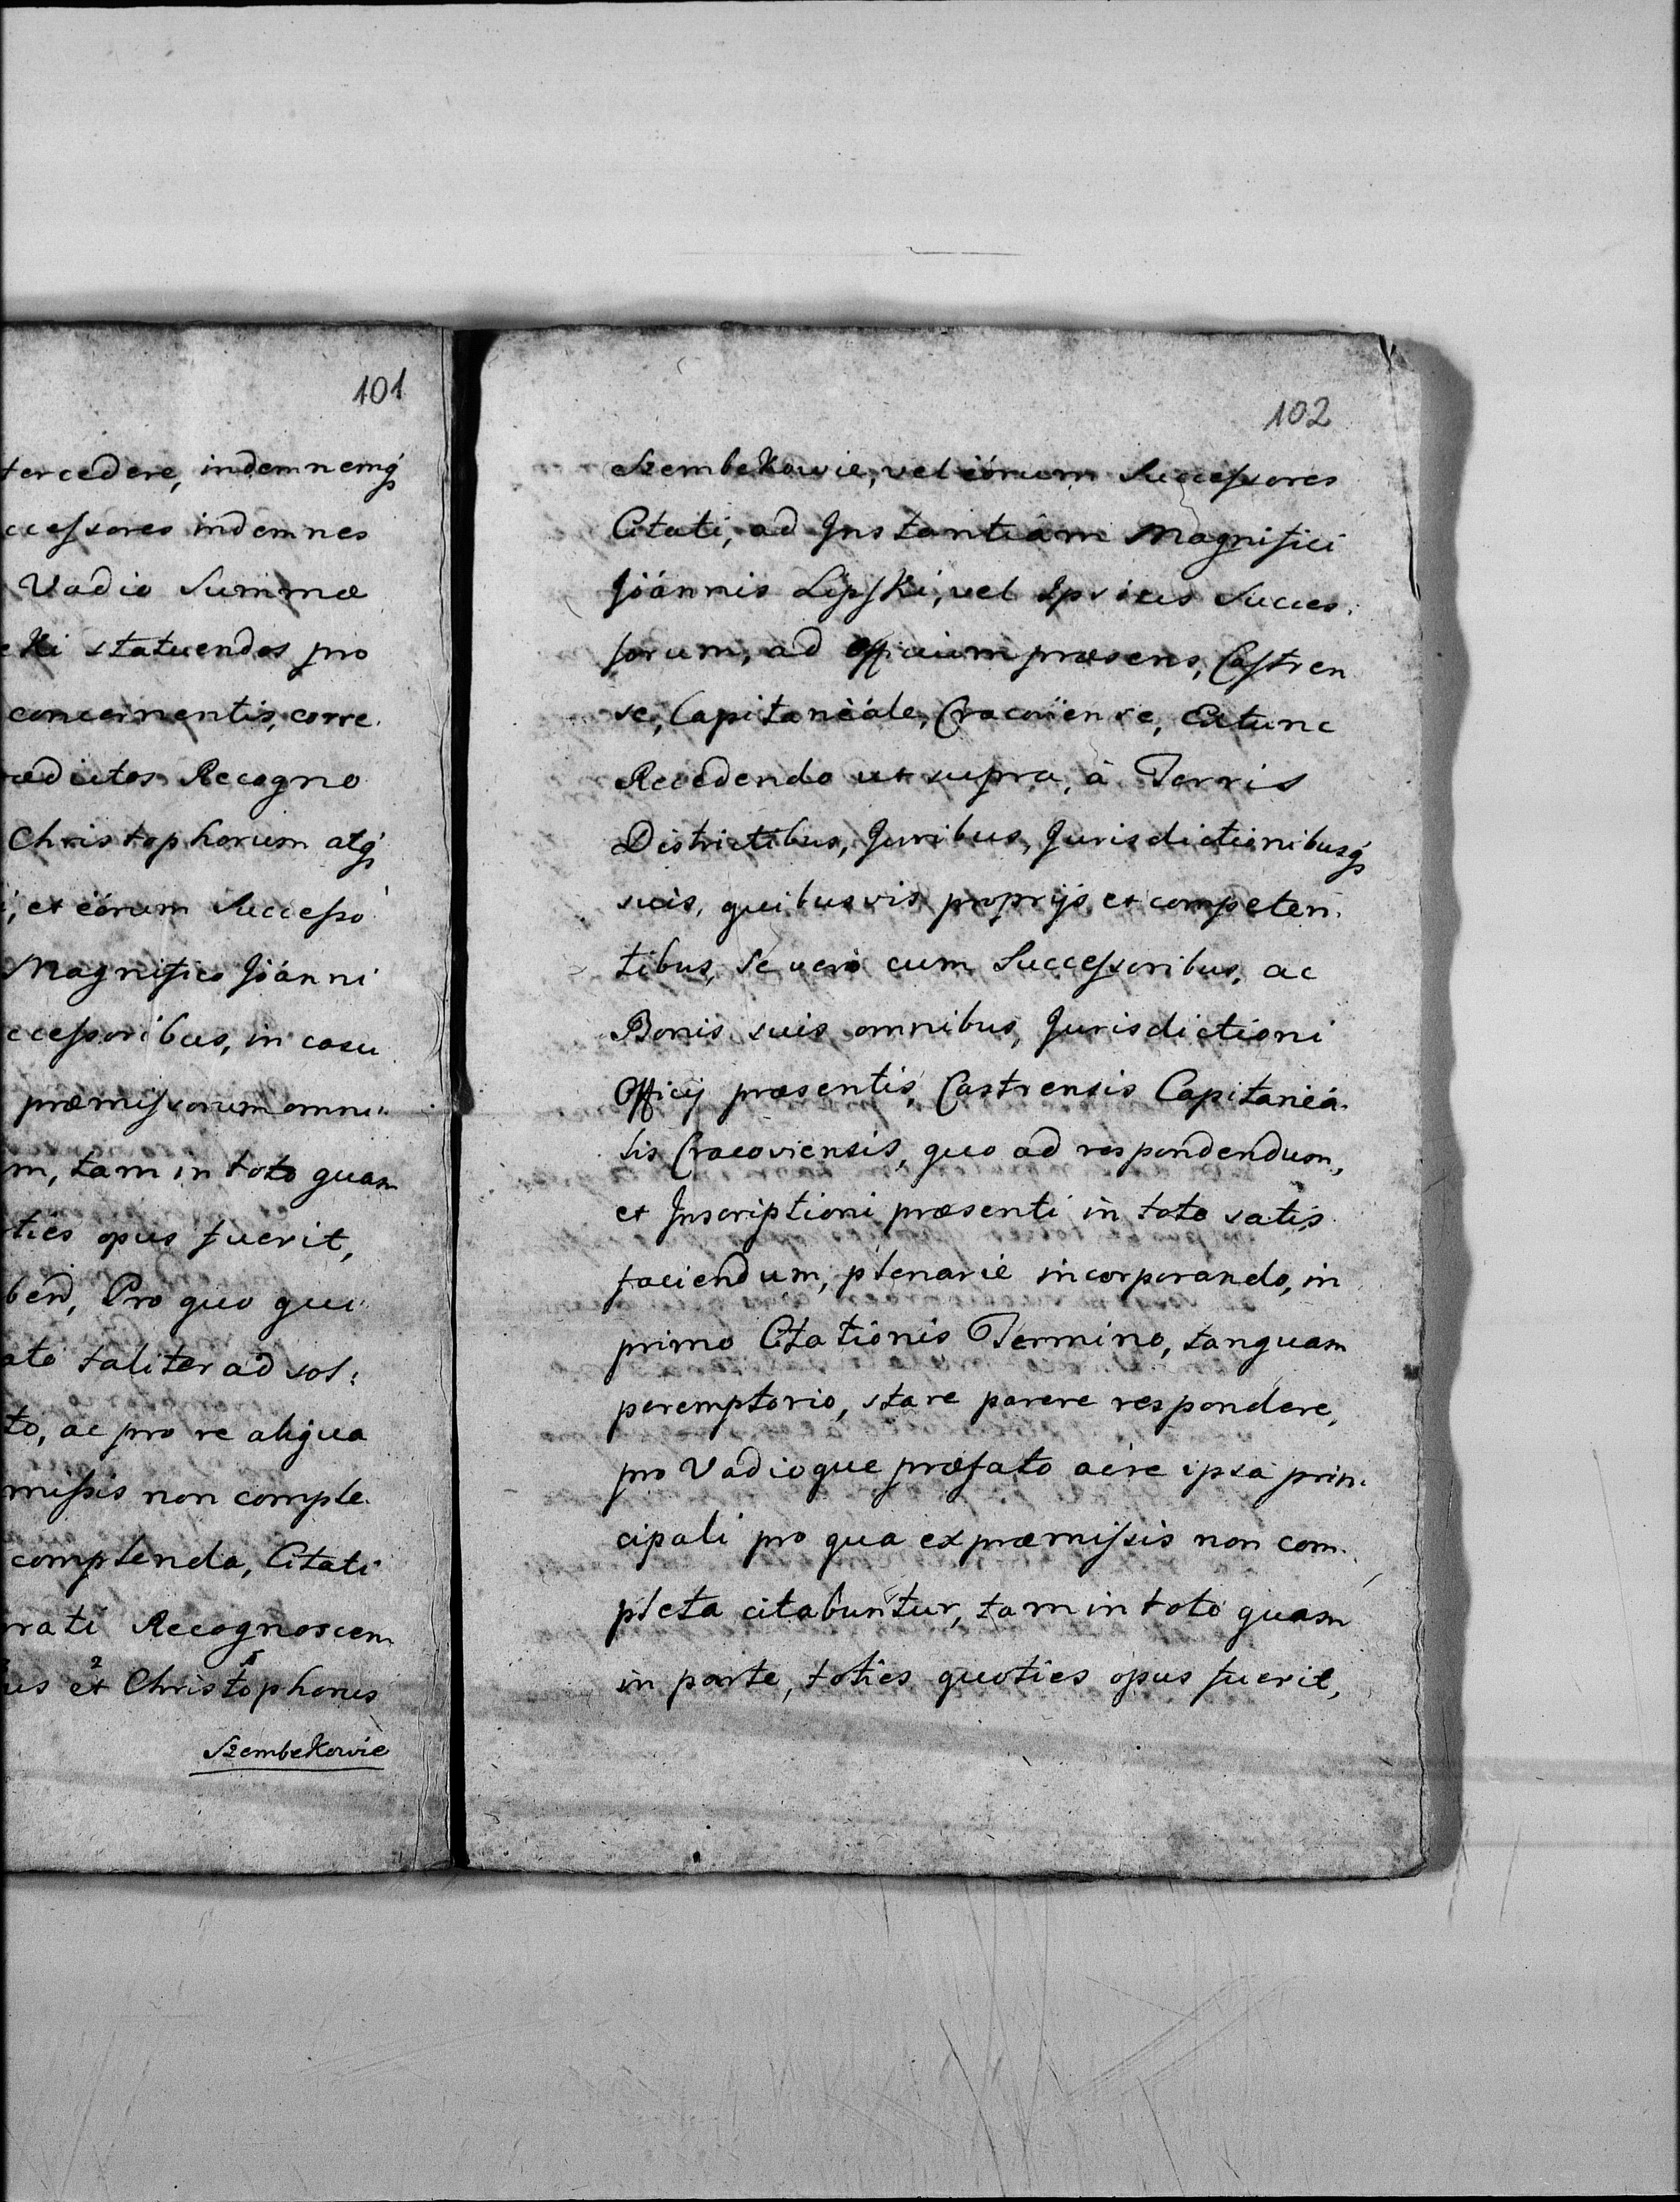 101
tercedere, indemnemq́
ccessores indemnes
Vadio Summæ
eki statuendos pro
concernentis, corre.
rædictos Recogno
Christophorum atq́
i, et eórum Successo
Magnifico Joánni
ccessoribus, in casu
præmissorum omni.
m, tam in toto quam
ties opus fuerit,
bend, Pro quo qui
ato taliter ad sol:
to, ac pro re aliqua
missis non comple.
complenda, Citati
rati Recognoscen
us et 2 Christophorus
Szembekowie
102
Szembekowie, vel eórum Successores
Citati, ad Instantiam Magnifici
Joánnis Lipski, vel Ipsius Succes.
sorum, ad Officium præsens, Castren
se, Capitaneále, Cracoviense, Extunc
Recedendo ut supra, à Terris
Districtibus, Juribus, Jurisdictionibusq́
suis, quibusvis proprijs et competen.
tibus, Se vero cum Successoribus, ac
Bonis suis omnibus, Jurisdictioni
Officij præsentis, Castrensis Capitaneá.
lis Cracoviensis, quo ad respondendum,
et Inscriptioni præsenti in toto satis
faciendum, plenarie incorporando, in
primo Citationis Termino, tanquam
peremptorio, stare parere respondere,
pro Vadioque præfato ac re ipsa prin.
cipali pro qua ex præmissis non com.
pleta citabuntur, tam in toto quam
in parte, toties quoties opus fuerit,